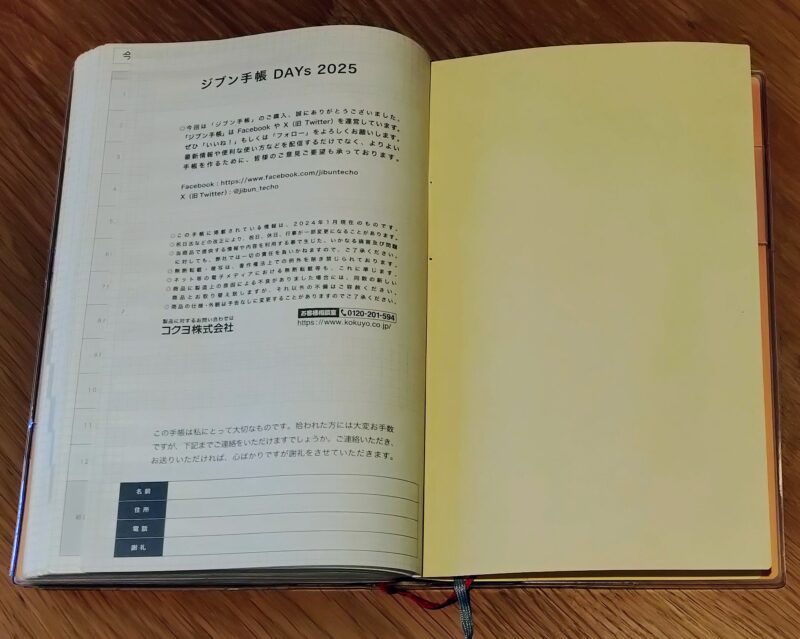 ジブン手帳 DAYs 2025
◎今回は「ジブン手帳」のご購入、誠にありがとうございました。
「ジブン手帳」は Facebook や X（旧 Twitter）を運営しています。
ぜひ「いいね！」もしくは「フォロー」をよろしくお願いします。
最新情報や便利な使い方などを配信するだけでなく、よりよい
手帳を作るために、皆様のご意見ご要望も承っております。
Facebook : https://www.facebook.com/jibuntecho
X（旧 Twitter）: @jibun_techo
◎この手帳に掲載されている情報は、2024年1月現在のものです。
◎祝日法などの改正により、祝日、休日、行事が一部変更になることがあります。
◎当商品で提供する情報や内容を利用する事で生じた、いかなる損害及び問題
に対しても、弊社では一切の責任を負いかねますので、ご了承ください。
◎無断転載・複写は、著作権法上での例外を除き禁じられております。
◎ネット等の電子メディアにおける無断転載等も、これに準じます。
◎商品に製造上の原因による不良がありました場合には、同数の新しい
商品とお取り替え致しますが、それ以外の不備はご容赦ください。
◎商品の仕様・外観は予告なしに変更することがありますのでご了承ください。
製品に対するお問い合わせは
コクヨ株式会社
お客様相談室 0120-201-594
https://www.kokuyo.co.jp/
この手帳は私にとって大切なものです。拾われた方には大変お手数
ですが、下記までご連絡をいただけますでしょうか。ご連絡いただき、
お送りいただければ、心ばかりですが謝礼をさせていただきます。
名前
住所
電話
謝礼
1
2
3
4
5
6
7
8
9
10
11
12